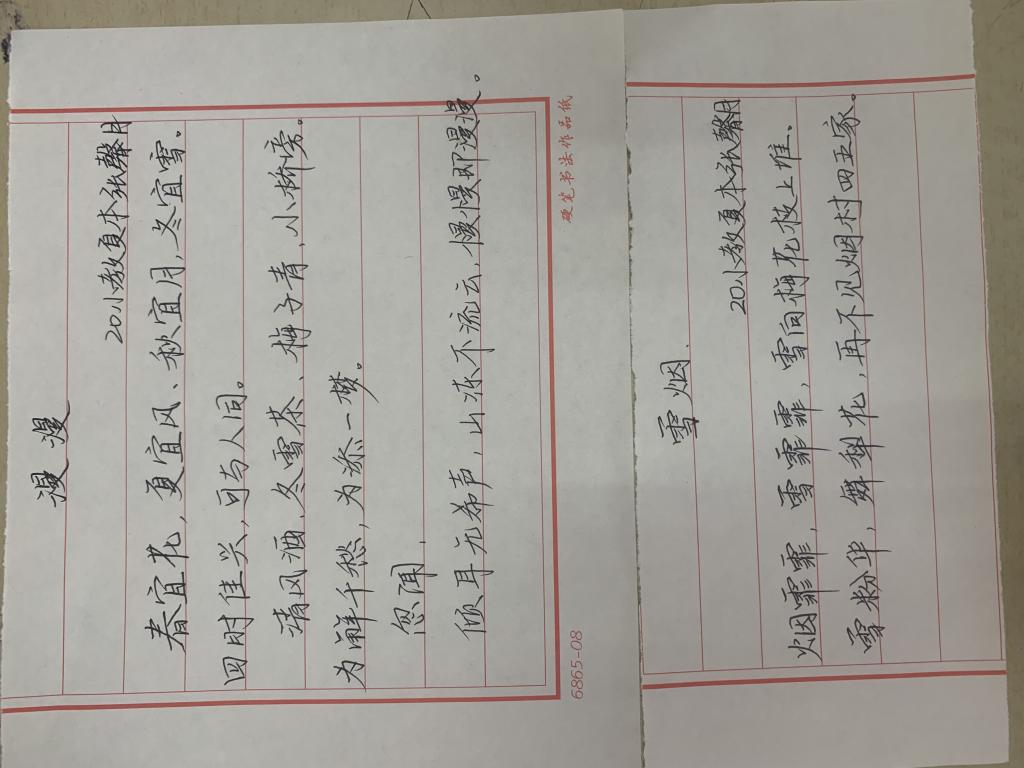 漫漫
20小教夏本张馨月
春宜花，夏宜风、秋宜月，冬宜雪。
四时佳兴，可与人间。
清风酒，冬雪茶、梅子青，小柳旁。
为解千愁，为添一梦。
忽闻，
倾耳无希声，山冻不流云，慢慢那漫漫。
硬笔书法作品纸
6865-08
雪烟.
20小教夏本张馨月
烟霏霏，雪霏霏，雪向梅花枝上堆、
雪粉华，舞料花，再不见烟村四五家。